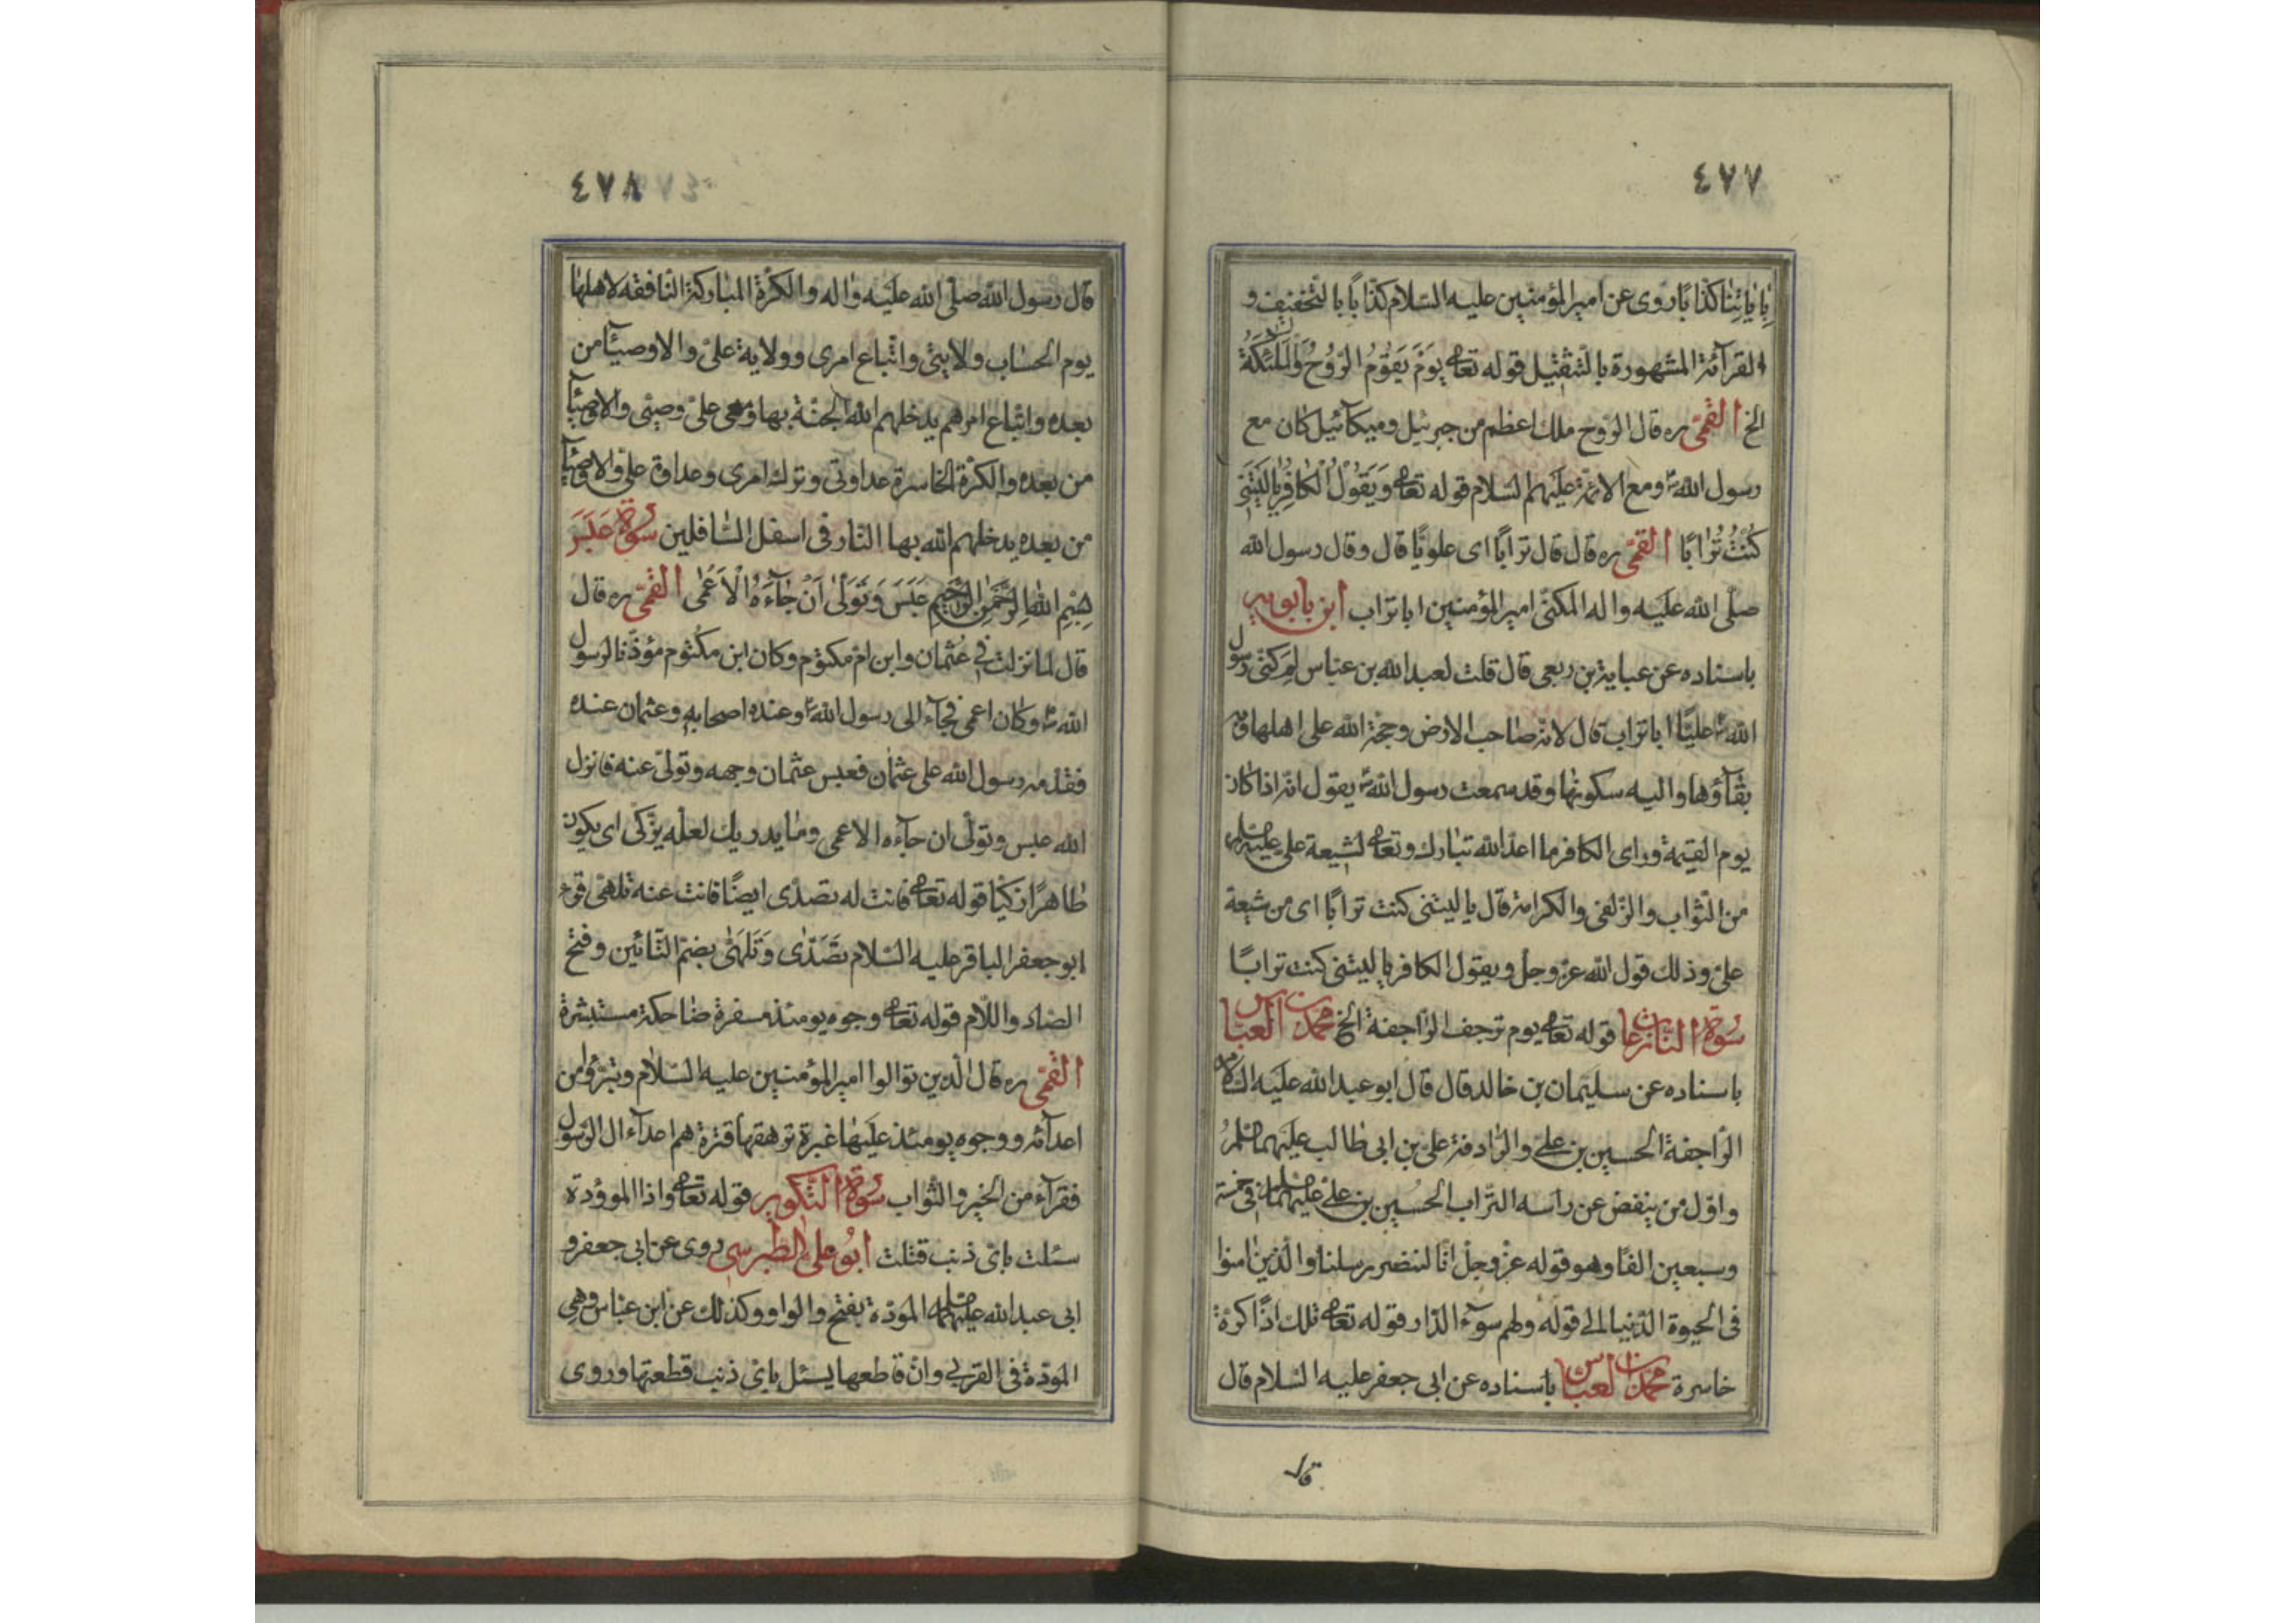 ٤٧٧
بِاٰيٰاتِنٰا كذّابًا روى عن امير المؤمنين عليه السّلام كذابًا بالتخفيف و
القرآئة المشهورة بالتثقيل قوله تعالى يَوْمَ يَقُومُ الرُّوحُ وَالْمَلٰئِكَةُ
الخ القمّى ره قال الرّوح ملك اعظم من جبرئيل وميكآئيل كان مع
رسول الله ص ومع الائمّة عليهم السّلام قوله تعالى وَيَقُولُ الْكٰافِرُ يٰا لَيْتَنِى
كُنْتُ تُرٰابًا القمّى ره قال قال ترابًا اى علويًا قال وقال رسول الله
صلّى الله عليه واله المكنّى امير المؤمنين ابا تراب ابن بابويه
باسناده عن عباية بن ربعى قال قلت لعبد الله بن عبّاس لِمَ كنّى رسول
الله ص عليًّا ابا تراب قال لانّه صاحب الارض وحجّة الله على اهلها وبه
بقآؤها واليه سكونها وقد سمعت رسول الله ص يقول انّه اذا كان
يوم القيمة وراى الكافر ما اعدّ الله تبارك وتعالى لشيعة على عليه السلام
من الثّواب والزّلفى والكرامة قال يا ليتنى كنت ترابًا اى من شيعة
علىّ وذلك قول الله عزّ وجلّ ويقول الكافر يا ليتنى كنت ترابًا
سورة النّازعات قوله تعالى يوم ترجف الرّاجفة الخ محمّد بن العبّاس
باسناده عن سليمان بن خالد قال قال ابو عبد الله عليه السّلام
الرّاجفة الحسين بن علىّ والرّادفة علىّ بن ابى طالب عليهما السلم
واوّل من ينفض عن راسه التّراب الحسين بن علىّ عليهما السلام فى خمسة
وسبعين الفًا وهو قوله عزّ وجلّ انّا لننصر رسلنا والّذين اٰمنوا
فى الحيوة الدّنيا الى قوله ولهم سوء الدّار قوله تعالى تلك اذًا كرّة
خاسرة محمّد بن العبّاس باسناده عن ابى جعفر عليه السّلام قال
قال
٤٧٨
قال رسول الله صلّى الله عليه واله والكرّة المباركة النّافعة لاهلها
يوم الحساب ولايتى واتّباع امرى وولاية علىّ والاوصيآء من
بعده واتباع امرهم يدخلهم الله الجنّة بها ومعى علىّ وصيّى والاوصيآء
من بعده والكرّة الخاسرة عداوتى وترك امرى وعداوة علىّ والاوصيآء
من بعده يدخلهم الله بها النّار فى اسفل السّافلين سورة عَبَسَ
بِسْمِ اللهِ الرَّحْمٰنِ الرَّحِيمِ عَبَسَ وَتَوَلّٰى اَنْ جٰآءَهُ الْاَعْمٰى القمّى ره قال
قال لما نزلت فى عُثمان وابن امّ مكتوم وكان ابن مكتوم مؤذّنا لرسول
الله ص وكان اعمى فجآء الى رسول الله ص وعنده اصحابه وعثمان عنده
فقدّمه رسول الله على عثمان فعبس عثمان وجهه وتولّى عنه فانزل
الله عبس وتولّى ان جآءه الاعمى وما يدريك لعلّه يزّكّى اى يكون
طاهرًا زكيًّا قوله تعالى فانت له تصدّى ايضًا فانت عنه تلهّى قرء
ابو جعفر الباقر عليه السّلام تُصَدّٰى وَتُلَهّٰى بضمّ التّائين وفتح
الصّاد واللّام قوله تعالى وجوه يومئذ مسفرة ضاحكة مستبشرة
القمّى ره قال الّذين توالوا امير المؤمنين عليه السّلام وتبرّؤا من
اعدآئه ووجوه يومئذ عليها غبرة ترهقها قترة هم اعدآء ال الرّسول
فقرآء من الخير والثّواب سورة التّكوير قوله تعالى واذا الموؤدة
سئلت باىّ ذنب قتلت ابو علىّ الطّبرسى روى عن ابى جعفر و
ابى عبد الله عليهما السلم المودّة بفتح والواو وكذلك عن ابن عبّاس وهى
المودّة فى القربى وانّ قاطعها يسئل باىّ ذنب قطعتها وروى